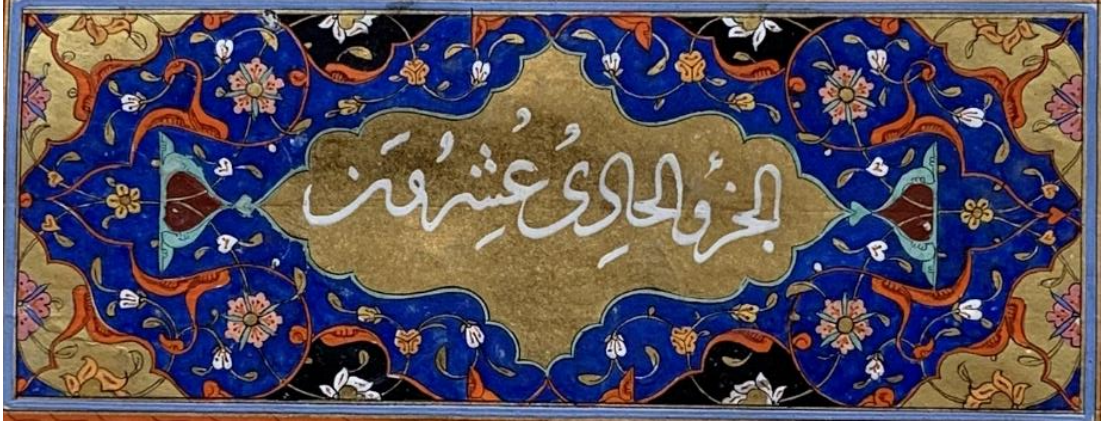 الجزؤ الحادِىُ عُشِرُونَ